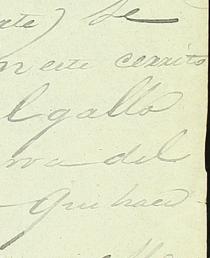 ate) se
n este cerrito
l gallo
va del
que hace